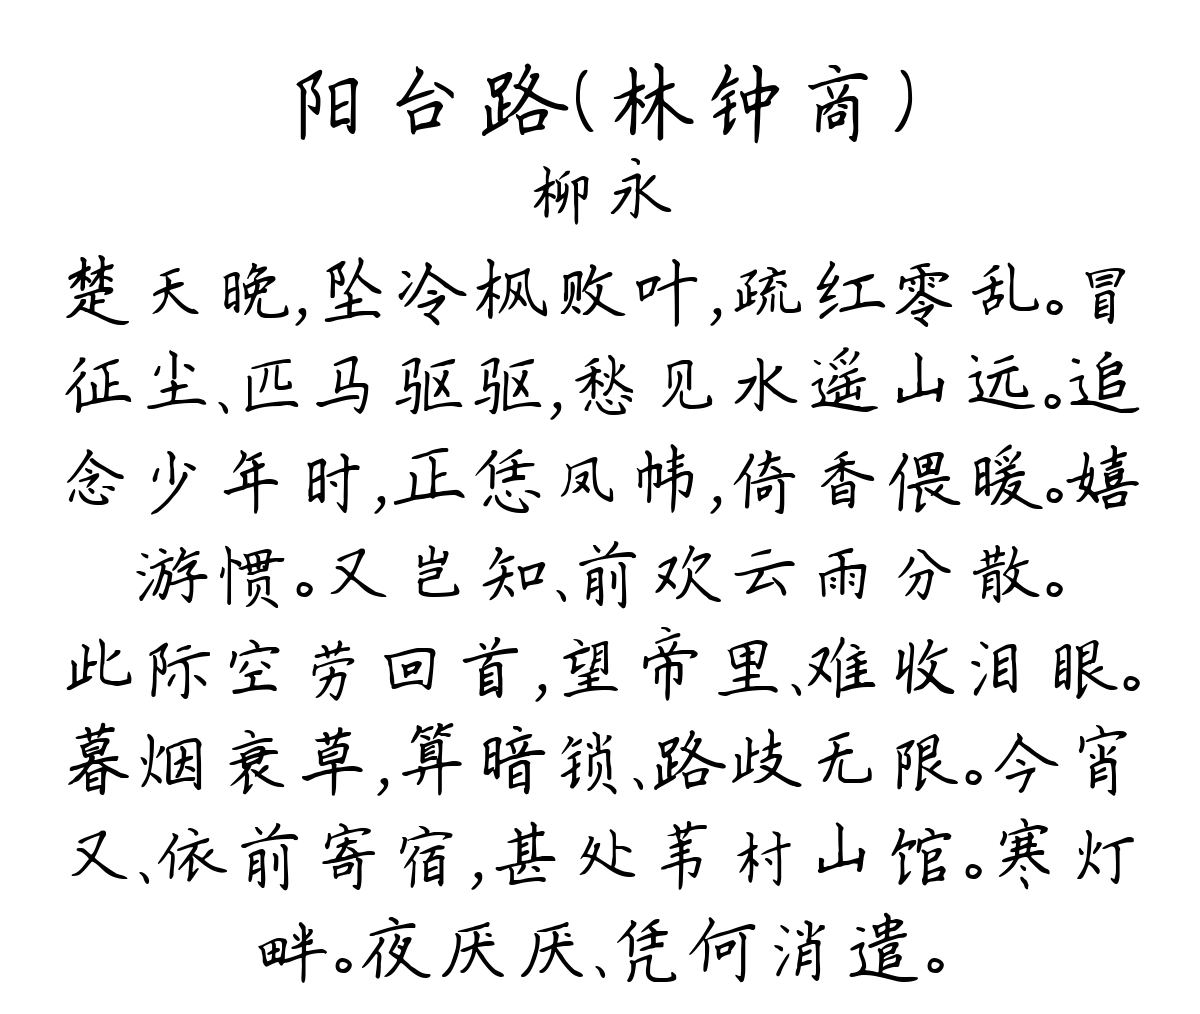 阳台路(林钟商)
柳永
楚天晚,坠冷枫败叶,疏红零乱。冒
征尘、匹马驱驱,愁见水遥山远。追
念少年时,正恁凤帏,倚香偎暖。嬉
游惯。又岂知、前欢云雨分散。
此际空劳回首,望帝里、难收泪眼。
暮烟衰草,算暗锁、路歧无限。今宵
又、依前寄宿,甚处苇村山馆。寒灯
畔。夜厌厌、凭何消遣。